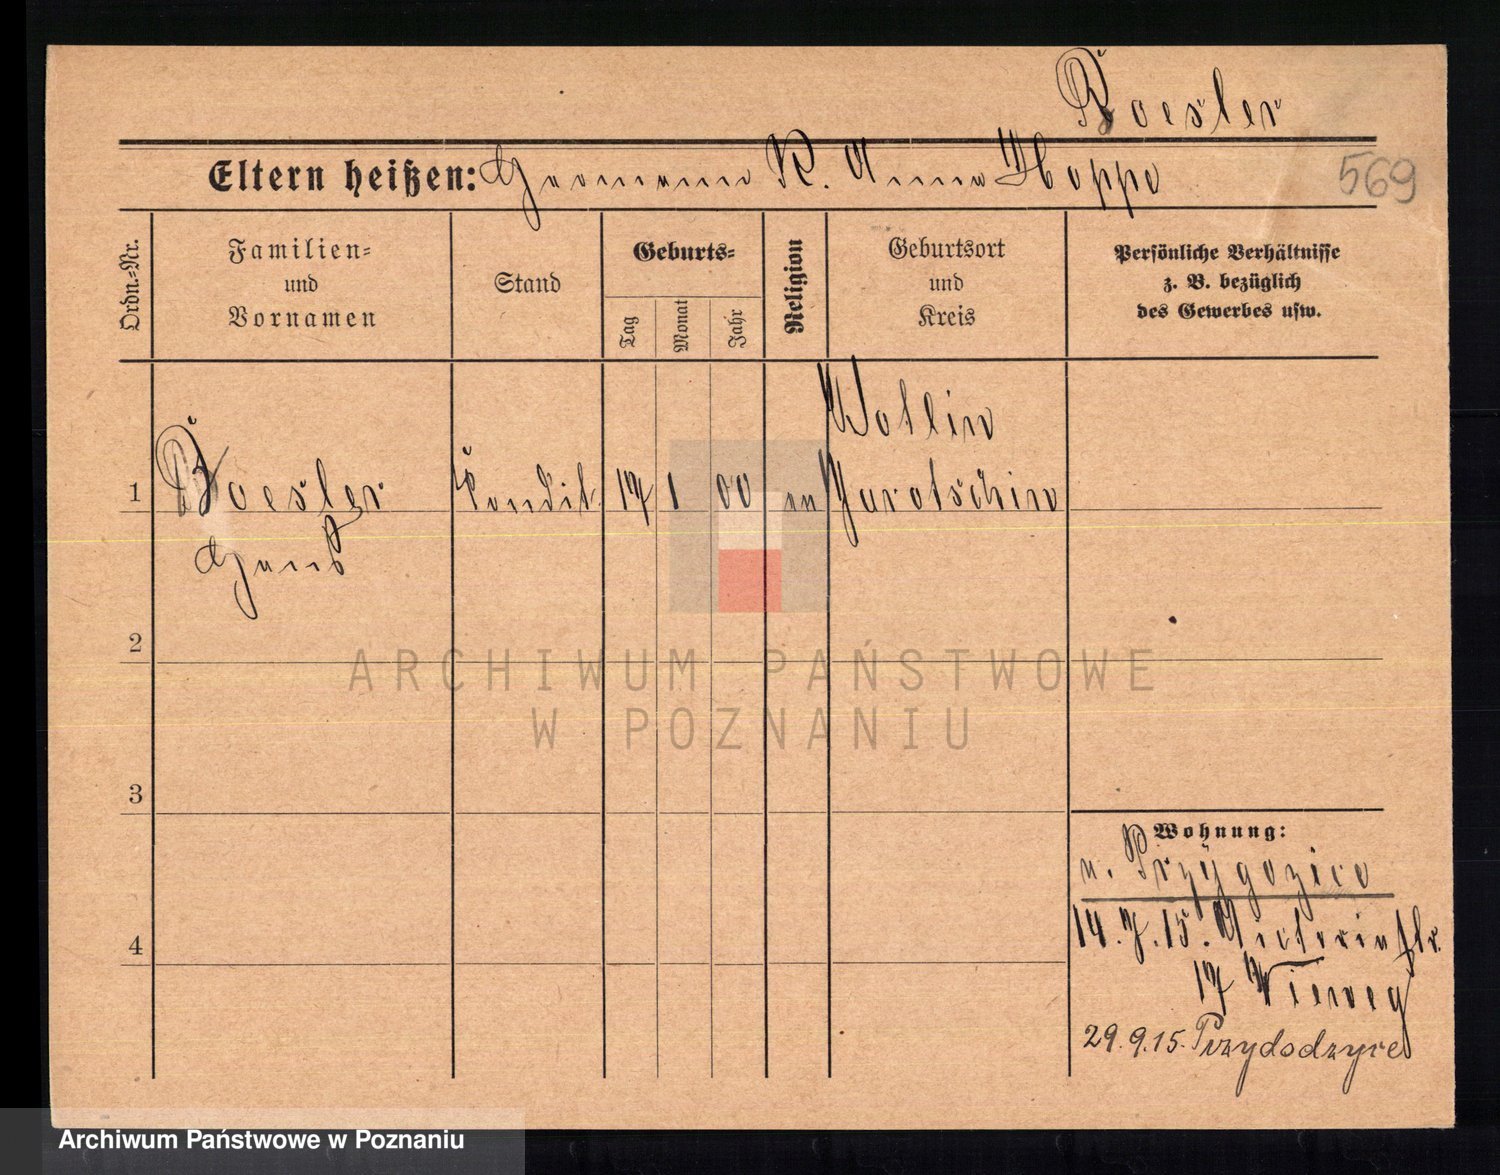 Roesler
Eltern heißen: Hermann R. Anna Hoppe
569
Ordn.-Nr.
Familien-
und
Vornamen
Stand
Geburts-
Tag
Monat
Jahr
Religion
Geburtsort
und
Kreis
Persönliche Verhältnisse
z. B. bezüglich
des Gewerbes usw.
Wollin
1 Roesler Kondit. 17 1 00 ev Jarotschin
Hans
2
3
4
Wohnung:
n. Przygozice
14.7.15. Victoriastr.
17 Vieweg
29.9.15.
ARCHIWUM PAŃSTWOWE
W POZNANIU
Archiwum Państwowe w Poznaniu